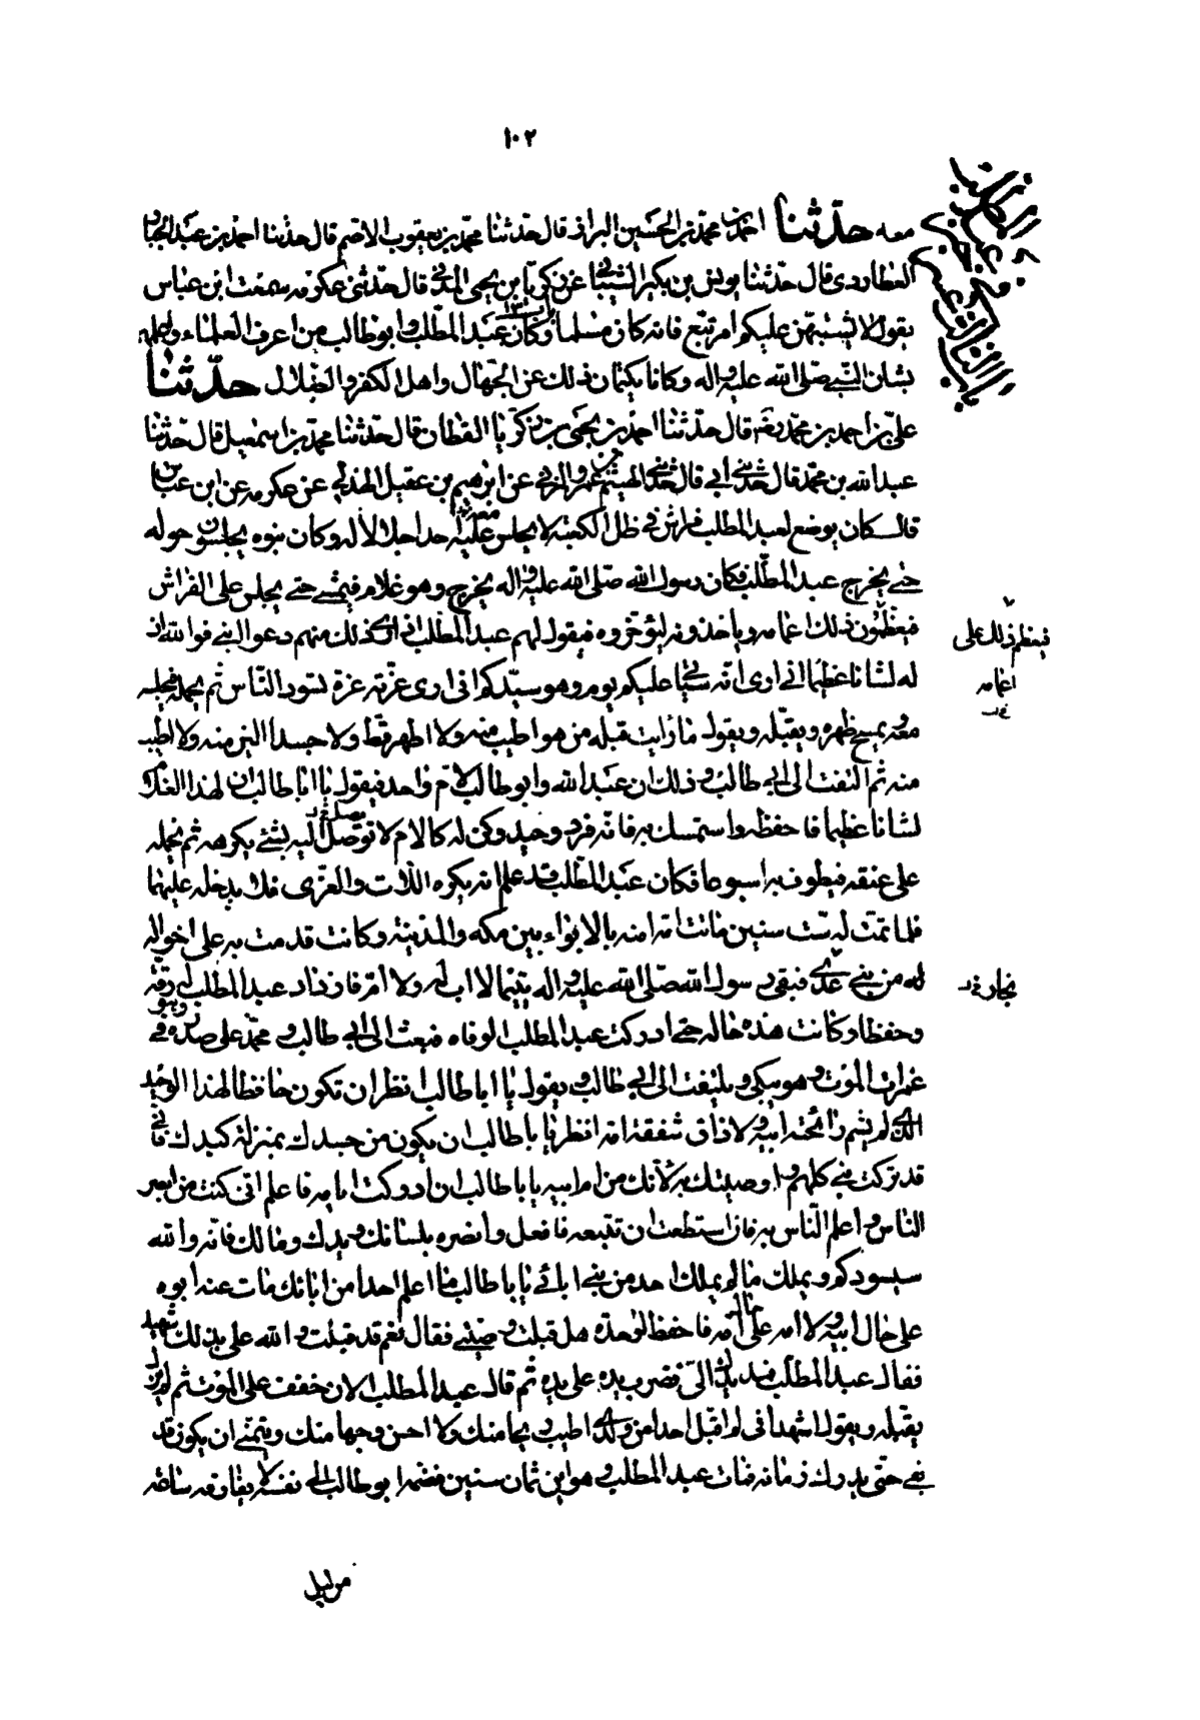 ١٠٢
معه حدّثنا احمد بن محمّد بن الحسين البزاز قال حدّثنا محمّد بن يعقوب الاصم قال حدثنا احمد بن عبد الجبار
العطاردى قال حدّثنا يونس بن بكير الشيبانى عن زكريا بن يحيى المدنى قال حدّثنى عكرمه سمعت ابن عباس
يقول لا يشتبهن عليكم امر تبع فانه كان مسلما باب ١٣ وكان عبد المطّلب وابو طالب من اعرف العلماء واعلمهم
بشان النبى صلى الله عليه واله وكانا يكتمان ذلك عن الجهال واهل الكفر والضلال حدّثنا
على بن احمد بن محمّد رضه قال حدّثنا احمد بن يحيى بن زكريا القطان قال حدّثنا محمّد بن اسمعيل قال حدّثنا
عبد الله بن محمّد قال حدثنى ابى قال حدثنى الهيثم بن عمرو المزنى عن ابرهيم بن عقيل الهذلى عن عكرمه عن ابن عباس
قال كان يوضع لعبد المطلب فراش فى ظل الكعبة لا يجلس عليه احد اجلالا له وكان بنوه يجلسون حوله
حتى يخرج عبد المطّلب فكان رسول الله صلى الله عليه واله يخرج وهو غلام فيمشى حتى يجلس على الفراش
فيعظمون ذلك اعمامه وياخذونه ليؤخروه فيقول لهم عبد المطلب اذا راى ذلك منهم دعوا ابنى فوالله ان
له لشانا عظيما انى ارى انه سياتى عليكم يوم وهو سيّدكم انى ارى غرّته غرة تسود الناس ثم يحمله فيجلسه
معه ويمسح ظهره ويقبّله ويقول ما رايت قبله من هو اطيب منه ولا اطهر قط ولا جسدا الين منه ولا اطيب
منه ثم التفت الى ابى طالب وذلك ان عبد الله وابو طالب لام واحد فيقول يا ابا طالب ان لهذا الغلام
لشانا عظيما فاحفظه واستمسك به فانّه فرد وحيد وكن له كالام لا توصل اليه بشئ يكرهه ثم يحمله
على عنقه فيطوف به اسبوعا فكان عبد المطّلب قد علم انه يكره اللّات والعزّى فلا يدخله عليهما
فلما تمّت له ست سنين ماتت امّه امنه بالابواء بين مكه والمدينة وكانت قدمت به على اخواله
له من بنى عدى فبقى رسول الله صلى الله عليه واله يتيما لا اب له ولا امّ فازداد عبد المطلب له رقّة
وحفظا وكانت هذه حاله حتى ادركت عبد المطلب الوفاه فبعث الى ابى طالب ومحمّد على صدره وهو فى
غمرات الموت وهو يبكى ويلتفت الى ابى طالب ويقول يا ابا طالب انظر ان تكون حافظا لهذا الوحيد
الذى لم يشم رائحة ابيه ولا ذاق شفقة امه انظر يا با طالب ان يكون من جسدك بمنزلة كبدك فانى
قد تركت بنى كلهم واوصيتك به لانك من ام ابيه يا با طالب ان ادركت ايامه فاعلم انى كنت من ابصر
الناس واعلم الناس به فان استطعت ان تتبعه فافعل وانصره بلسانك ويدك ومالك فانّه والله
سيسودكم ويملك ما لم يملك احد من بنى ابائى يا با طالب ما اعلم احدا من ابائك مات عنه ابوه
على حال ابيه ولا امه على حال امّه فاحفظ لوحده هل قبلت وصيتى فقال نعم قد قبلت والله على بذلك شهيد
فقال عبد المطّلب فمد يدك الىّ فضرب يده على يده ثم قال عبد المطلب الان خفف على الموت ثم لم يزل
يقبّله ويقول اشهد انى لم اقبل احدا من ولدى اطيب ريحا منك ولا احسن وجها منك ويتمنى ان يكون قد
بقى حتى يدرك زمانه فمات عبد المطلب وهو ابن ثمان سنين فضمه ابو طالب الى نفسه لا يفارقه ساعة
فيعظم ذلك على
اعمامه
نجار
من ليل